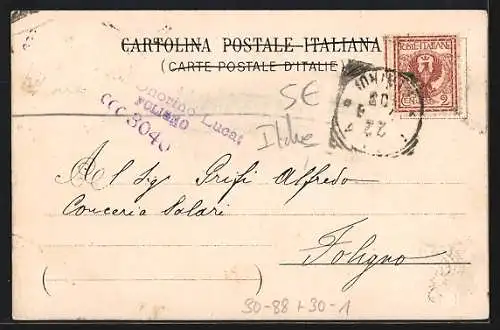 CARTOLINA POSTALE ITALIANA
(CARTE POSTALE D'ITALIE)
POSTE ITALIANE
CENT. 2
Onorino Lucat
FOLIGNO
CCC 3040
5E
22
Al Sig Grifi Alfredo
Conceria Salari
Foligno
30-88+30-1